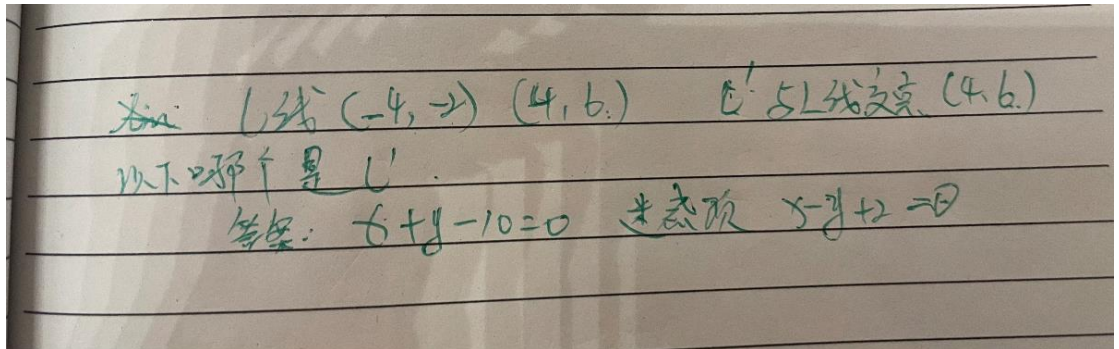 L线 (-4, -2) (4, 6.) L' 与L线交点 (4, 6.)
以下哪个是 L'.
答案: x+y-10=0 迷惑项 x-y+2=0